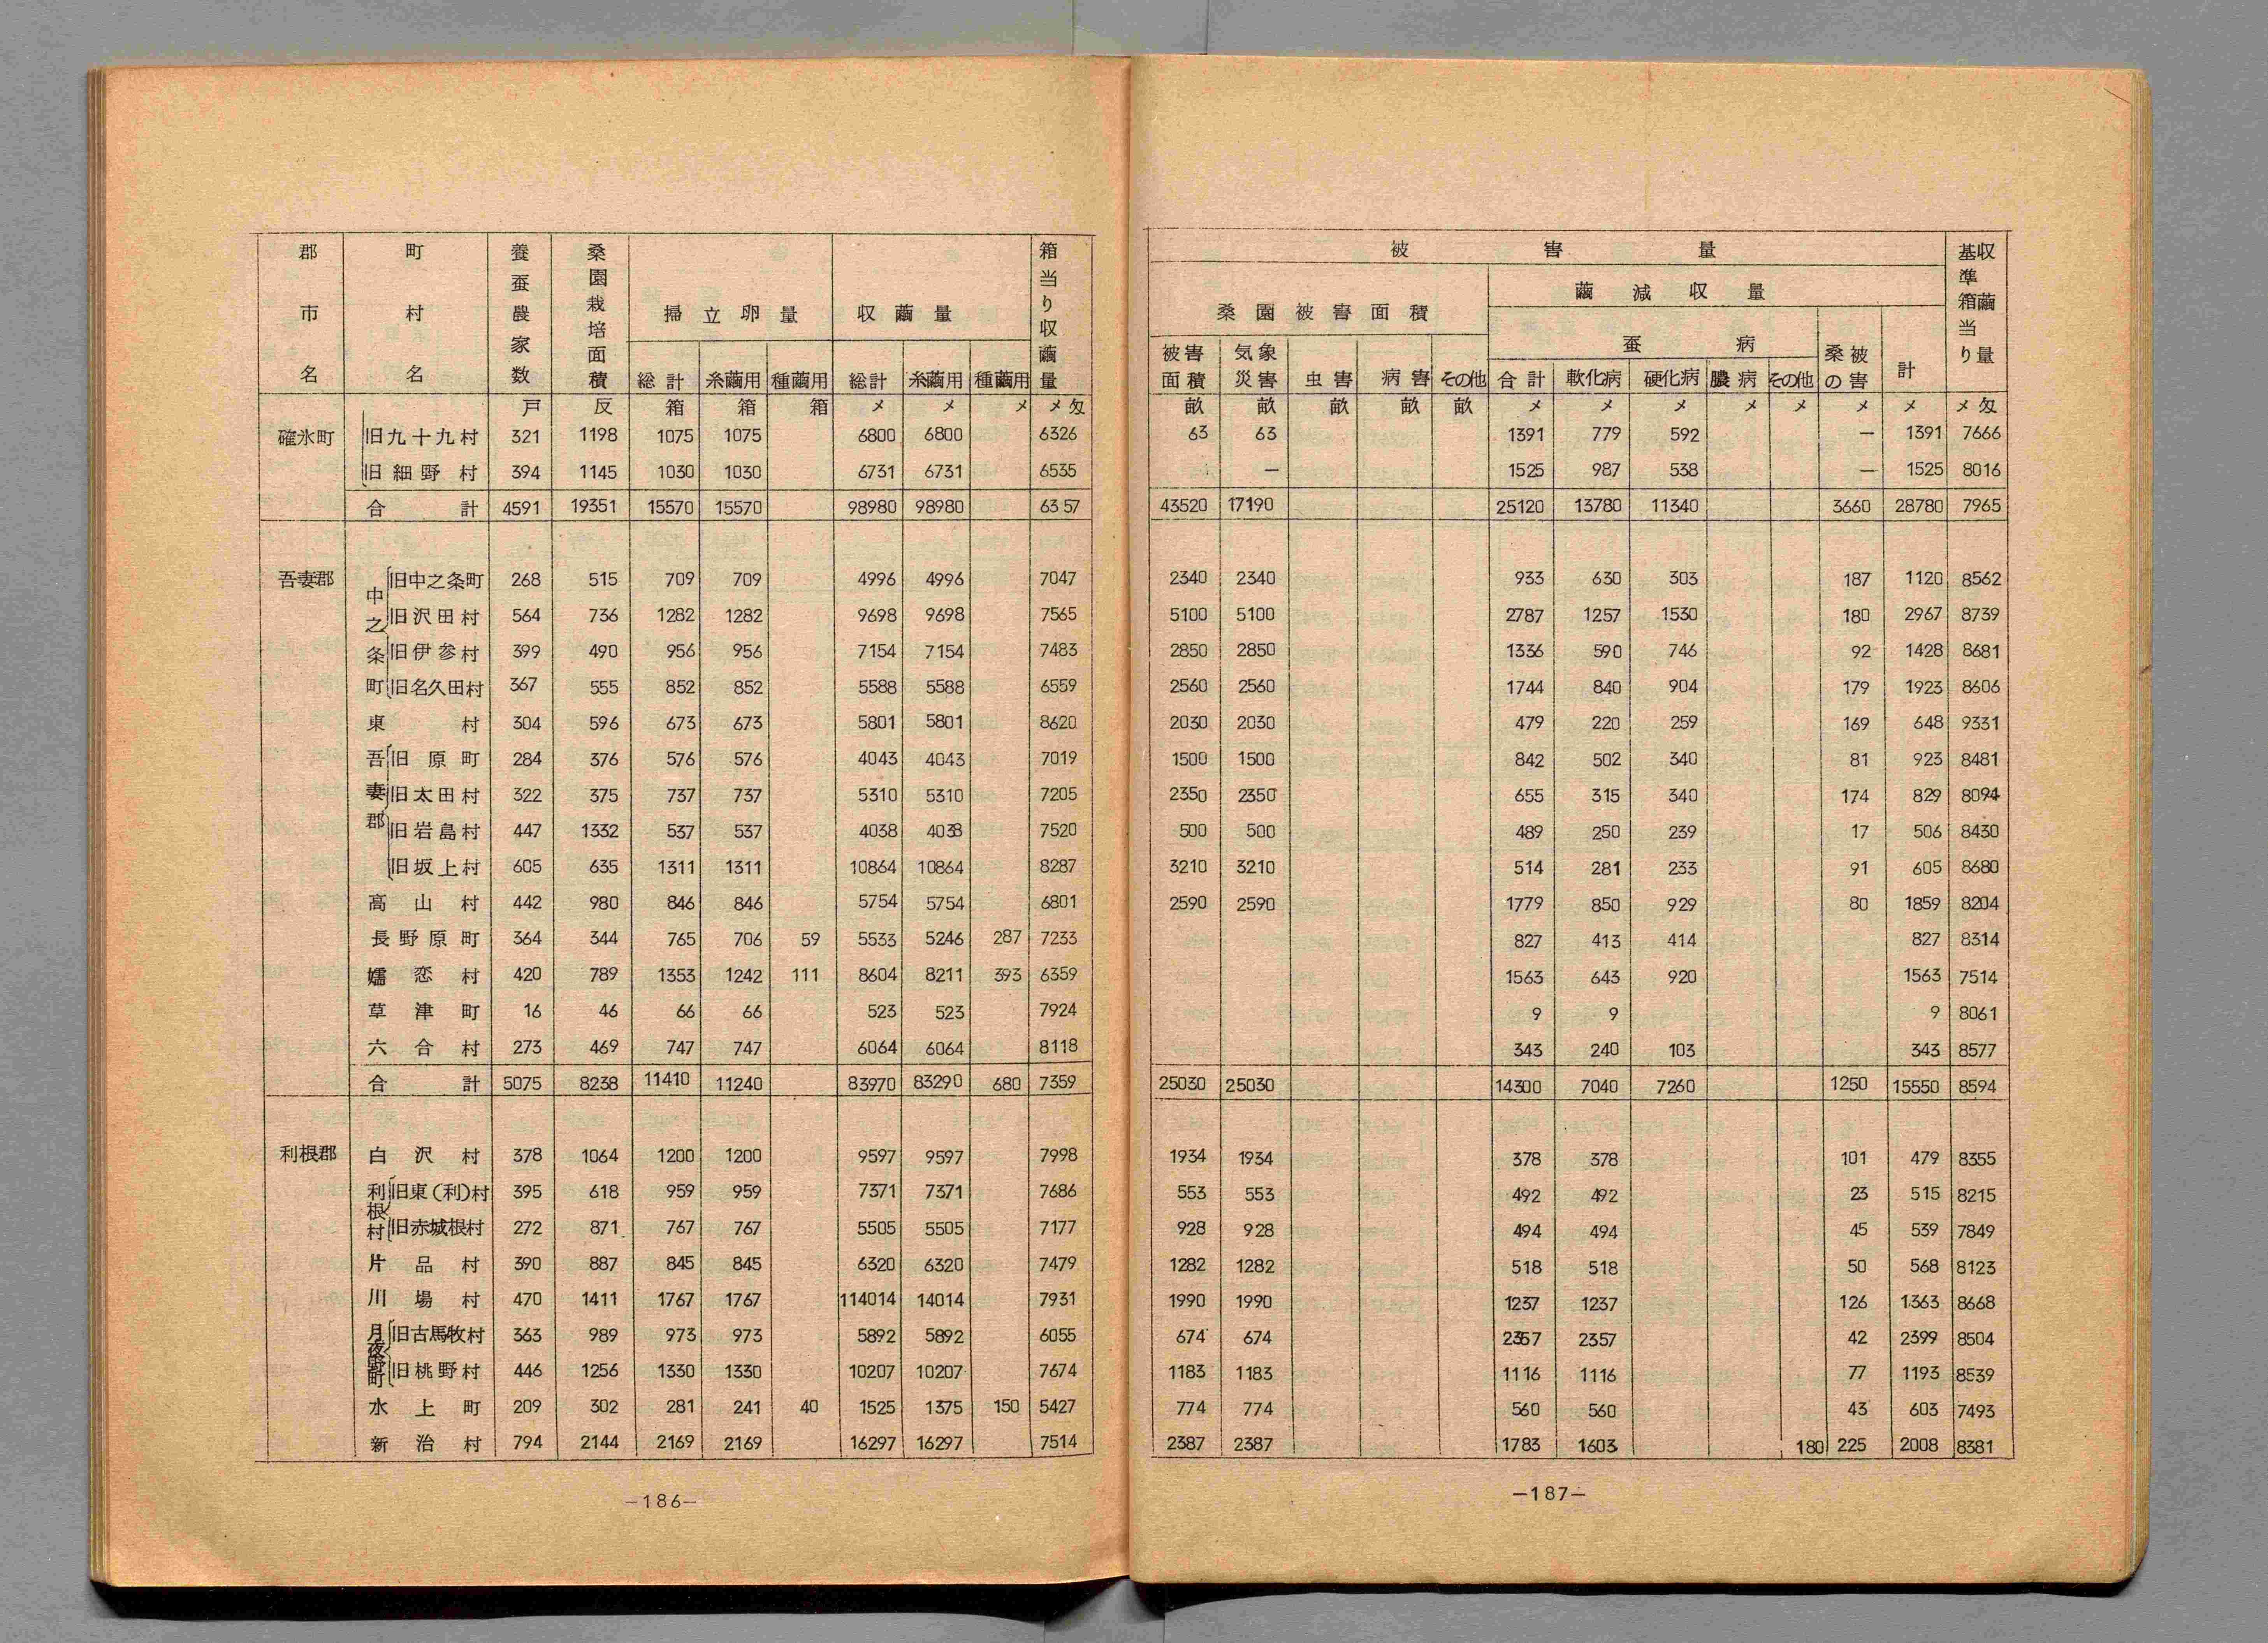 郡市名 町村名 養蚕農家数 桑園栽培面積 掃立卵量 収繭量 箱当り収繭量
総計 糸繭用 種繭用 総計 糸繭用 種繭用
戸 反 箱 箱 箱 メ メ メ メ匁
碓氷町 旧九十九村 321 1198 1075 1075 6800 6800 6326
旧細野村 394 1145 1030 1030 6731 6731 6535
合計 4591 19351 15570 15570 98980 98980 6357
吾妻郡 中之条町 旧中之条町 268 515 709 709 4996 4996 7047
旧沢田村 564 736 1282 1282 9698 9698 7565
旧伊参村 399 490 956 956 7154 7154 7483
旧名久田村 367 555 852 852 5588 5588 6559
東村 304 596 673 673 5801 5801 8620
吾妻郡 旧原町 284 376 576 576 4043 4043 7019
旧太田村 322 375 737 737 5310 5310 7205
旧岩島村 447 1332 537 537 4038 4038 7520
旧坂上村 605 635 1311 1311 10864 10864 8287
高山村 442 980 846 846 5754 5754 6801
長野原町 364 344 765 706 59 5533 5246 287 7233
嬬恋村 420 789 1353 1242 111 8604 8211 393 6359
草津町 16 46 66 66 523 523 7924
六合村 273 469 747 747 6064 6064 8118
合計 5075 8238 11410 11240 83970 83290 680 7359
利根郡 白沢村 378 1064 1200 1200 9597 9597 7998
利根村 旧東(利)村 395 618 959 959 7371 7371 7686
旧赤城根村 272 871 767 767 5505 5505 7177
片品村 390 887 845 845 6320 6320 7479
川場村 470 1411 1767 1767 114014 14014 7931
月夜野町 旧古馬牧村 363 989 973 973 5892 5892 6055
旧桃野村 446 1256 1330 1330 10207 10207 7674
水上町 209 302 281 241 40 1525 1375 150 5427
新治村 794 2144 2169 2169 16297 16297 7514
—186—
被害量 基準箱当り収繭量
桑園被害面積 繭減収量
蚕病 桑の被害 計
被害面積 気象災害 虫害 病害 その他 合計 軟化病 硬化病 膿病 その他
畝 畝 畝 畝 畝 メ メ メ メ メ メ メ メ匁
63 63 1391 779 592 — 1391 7666
— 1525 987 538 — 1525 8016
43520 17190 25120 13780 11340 3660 28780 7965
2340 2340 933 630 303 187 1120 8562
5100 5100 2787 1257 1530 180 2967 8739
2850 2850 1336 590 746 92 1428 8681
2560 2560 1744 840 904 179 1923 8606
2030 2030 479 220 259 169 648 9331
1500 1500 842 502 340 81 923 8481
2350 2350 655 315 340 174 829 8094
500 500 489 250 239 17 506 8430
3210 3210 514 281 233 91 605 8680
2590 2590 1779 850 929 80 1859 8204
827 413 414 827 8314
1563 643 920 1563 7514
9 9 9 8061
343 240 103 343 8577
25030 25030 14300 7040 7260 1250 15550 8594
1934 1934 378 378 101 479 8355
553 553 492 492 23 515 8215
928 928 494 494 45 539 7849
1282 1282 518 518 50 568 8123
1990 1990 1237 1237 126 1363 8668
674 674 2357 2357 42 2399 8504
1183 1183 1116 1116 77 1193 8539
774 774 560 560 43 603 7493
2387 2387 1783 1603 180 225 2008 8381
—187—